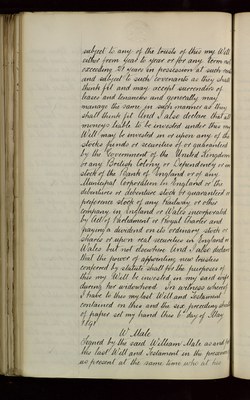 subject to any of the trusts of this my Will
either from year to year or for any term not
exceeding 21 years in possession at such rent
and subject to such covenants as they shall
think fit and may accept surrenders of
leases and tenancies and generally may
manage the same in such manner as they
shall think fit And I also declare that all
moneys liable to be invested under this my
Will may be invested in or upon any of the
stocks funds or securities of or guaranteed
by the Government of the United Kingdom
or any British Colony or Dependency or in
stock of the Bank of England or of any
Municipal Corporation in England or the
debentures or debenture stock or guaranteed or
preference stock of any Railway or other
company in England or Wales incorporated
by Act of Parliament or Royal Charter and
paying a dividend on its ordinary stock or
shares or upon real securities in England or
Wales but not elsewhere And I also declare
that the power of appointing new trustees
conferred by statute shall for the purposes of
this my Will be invested in my said wife
during her widowhood In witness whereof
I have to this my last Will and Testament
contained in this and the preceding sheets
of paper set my hand this 6th day of May
1891
W Male
Signed by the said William Male as and for
his last Will and Testament in the presence
us present at the same time who at his